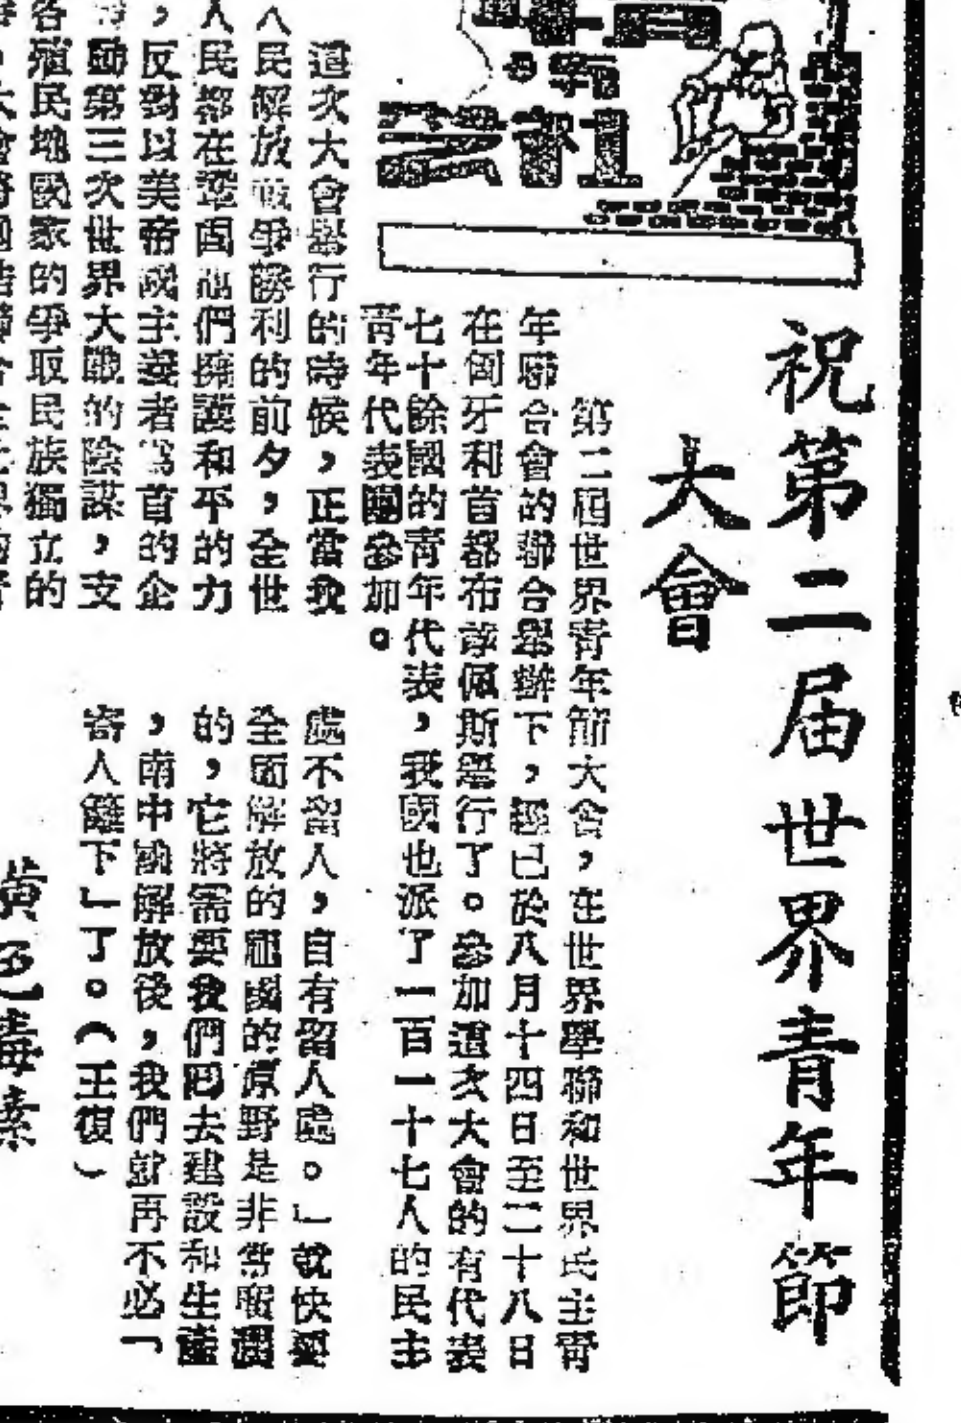 祝第二屆世界青年節
大會
第二屆世界青年節大會，在世界學聯和世界民主青
年聯合會的聯合舉辦下，經已於八月十四日至二十八日
在匈牙利首都布達佩斯舉行了。參加這次大會的有代表
七十餘國的青年代表，我國也派了一百一十七人的民主
青年代表團參加。
這次大會舉行的時候，正當我
人民解放戰爭勝利的前夕，全世
人民都在鞏固他們擁護和平的力
，反對以美帝國主義者為首的企
動第三次世界大戰的陰謀，支
各殖民地國家的爭取民族獨立的
處不留人，自有留人處。」就快要
全面解放的祖國的原野是非常廣濶
的，它將需要我們回去建設和生產
，南中國解放後，我們就再不必「
寄人籬下」了。（王復）
黃色毒素
社